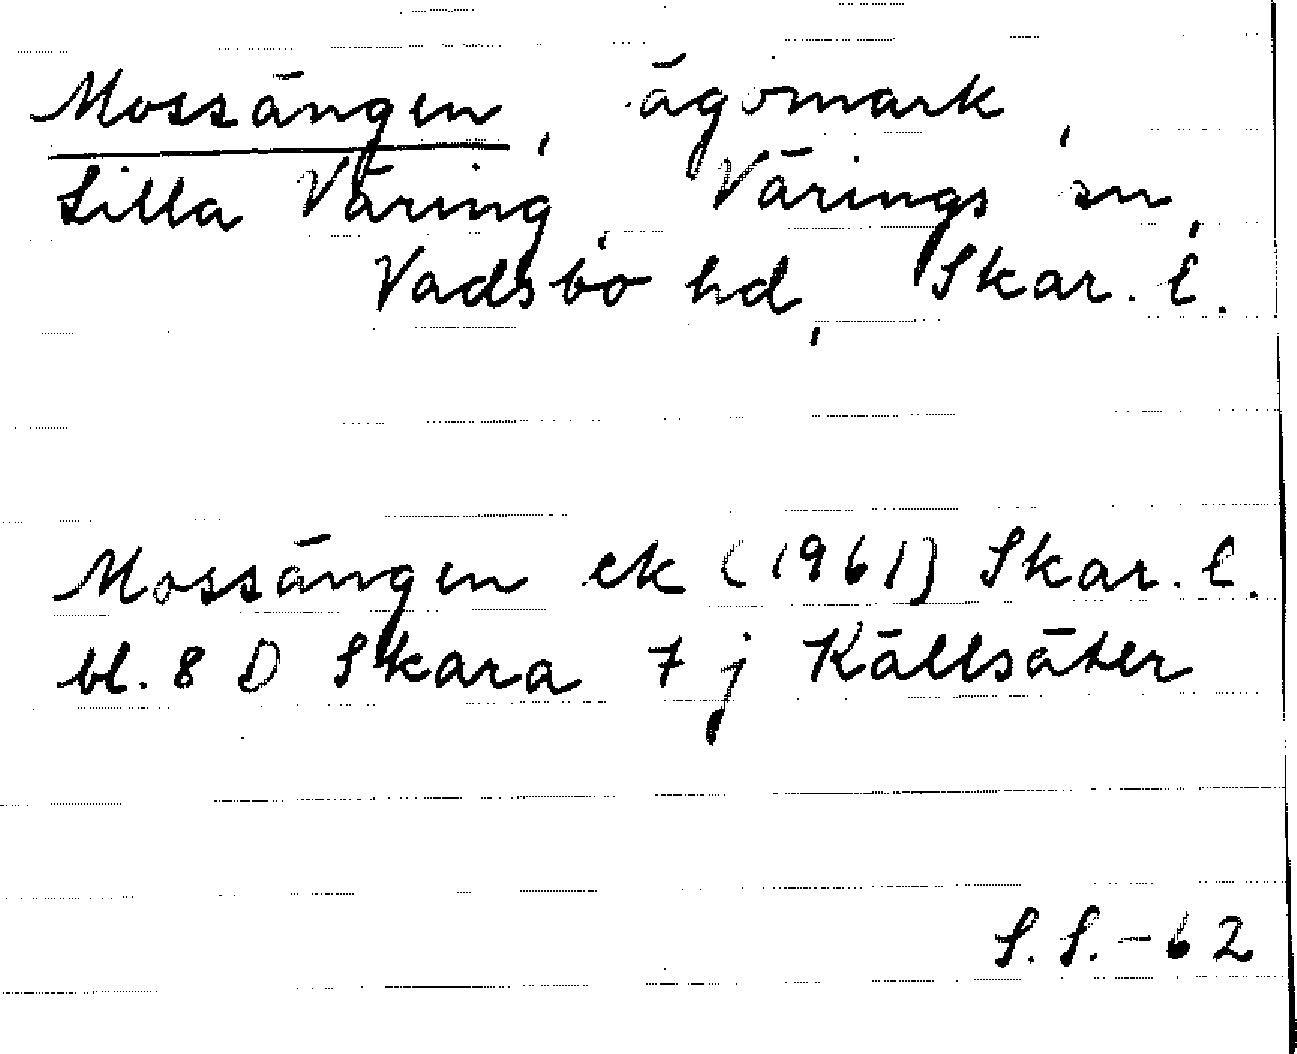 Mossängen, ägomark,
Lilla Väring, Värings sn,
Vadsbo hd, Skar. l.
Mossängen ek (1961) Skar. l.
bl. 8 D Skara 7 j Källsäter
S.S.-62